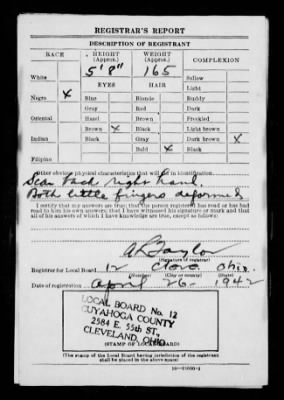 REGISTRAR'S REPORT
DESCRIPTION OF REGISTRANT
RACE HEIGHT (Approx.) WEIGHT (Approx.) COMPLEXION
5' 8" 165
White Sallow
EYES HAIR Light
Negro x Blue Blonde Ruddy
Gray Red Dark
Oriental Hazel Brown Freckled
Brown x Black Light brown
Indian Black Gray Dark brown x
Bald x Black
Filipino
Other obvious physical characteristics that will aid in identification
Scar back right hand.
Both little fingers deformed
I certify that my answers are true; that the person registered has read or has had
read to him his own answers; that I have witnessed his signature or mark and that
all of his answers of which I have knowledge are true, except as follows:
(Signature of registrar)
Registrar for Local Board 12 Cleve Ohio.
(Number) (City or county) (State)
Date of registration April 26 - 1942
LOCAL BOARD No. 12
CUYAHOGA COUNTY
2584 E. 55th ST.,
CLEVELAND, OHIO
(STAMP OF LOCAL BOARD)
(The stamp of the Local Board having jurisdiction of the registrant
shall be placed in the above space)